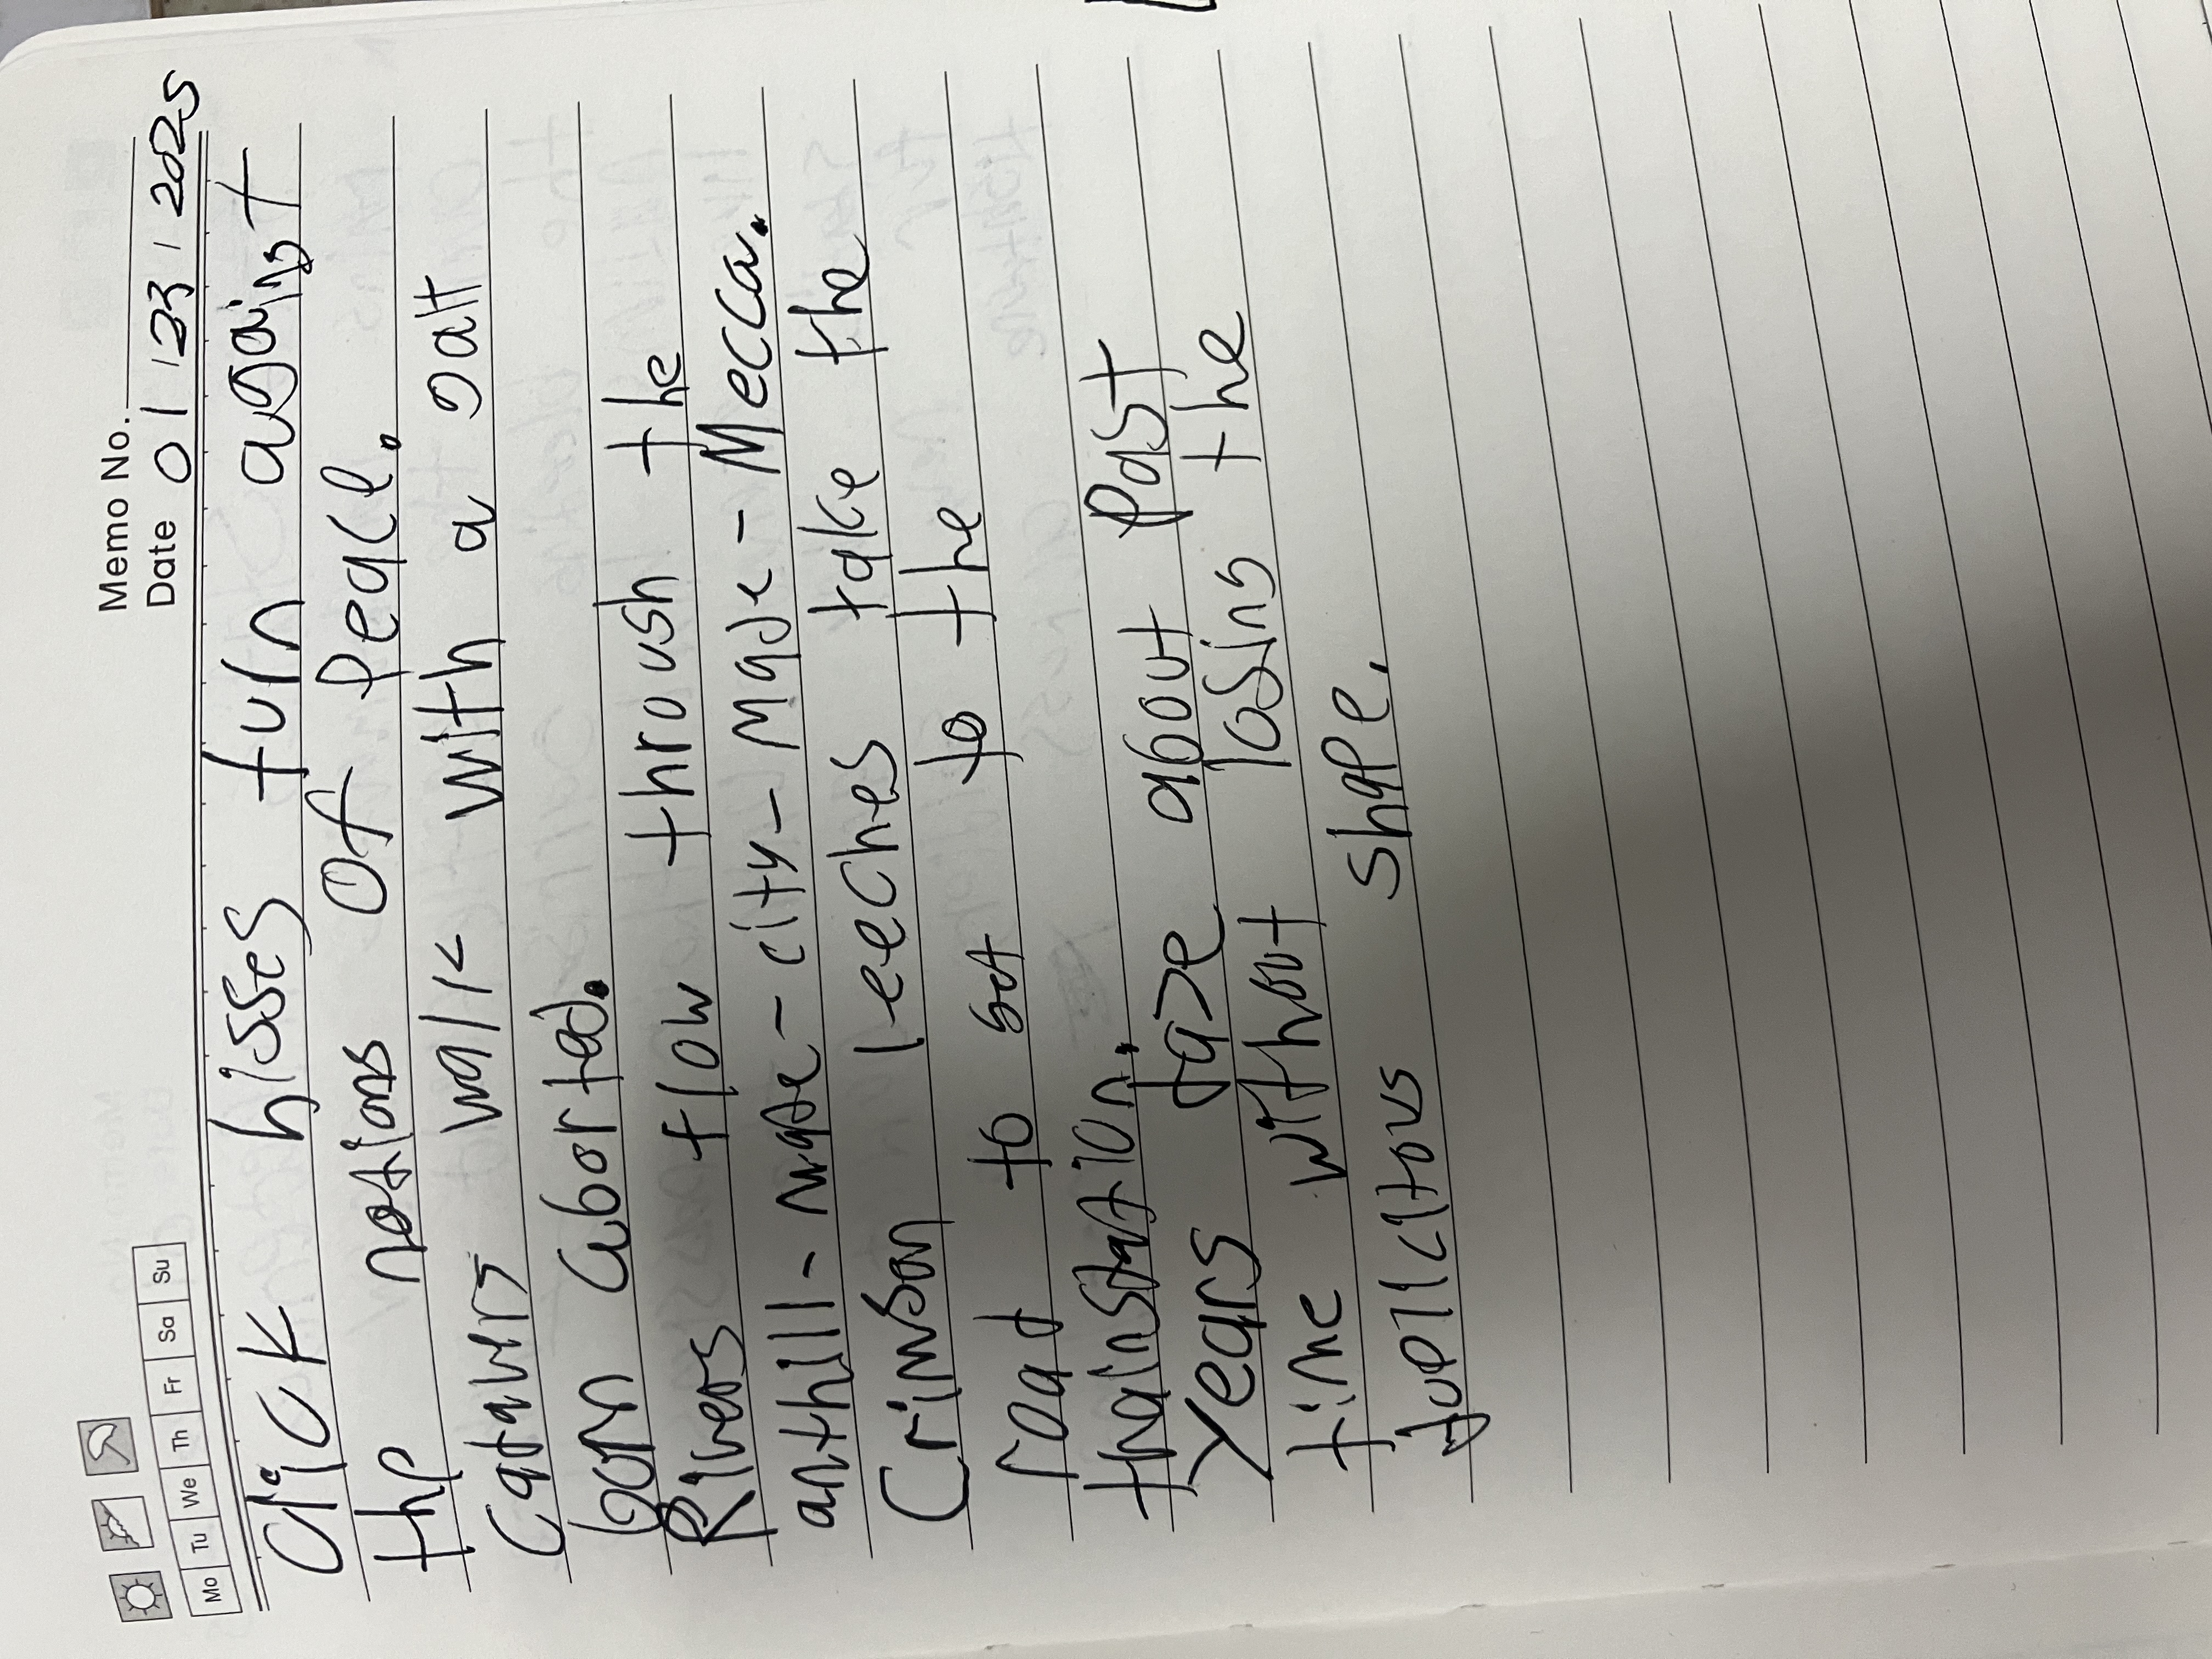 Memo No.
Date 01 / 23 / 2025
Mo Tu We Th Fr Sa Su
Click hisses turn against
the notions of peace.
Cadavers walk with a gait
born aborted.
Rivers flow through the
anthill-made-city-made-Mecca.
Crimson leeches take the
road to got to the
trainstation.
Years faze about past
time without losing the
duplicitous shape.